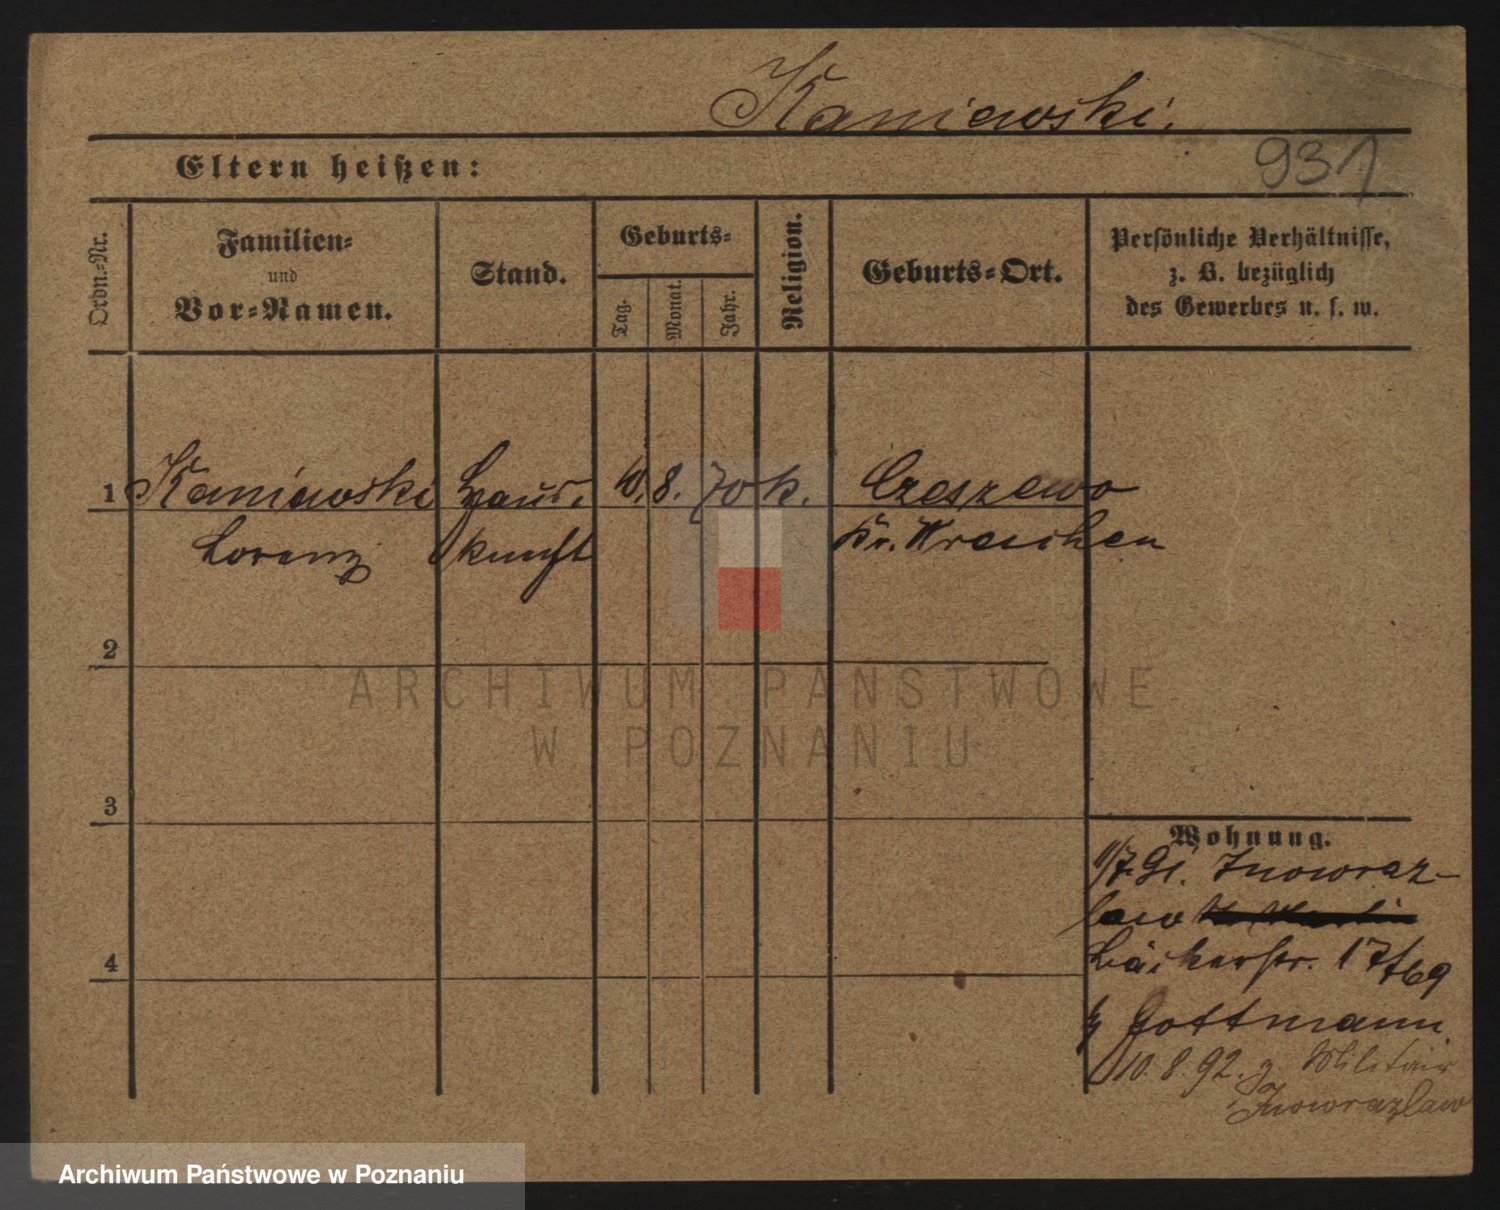 Kaniewski.
931
Eltern heißen:
Ordn.=Nr.
Familien=
und
Vor=Namen.
Stand.
Geburts=
Tag.
Monat.
Jahr.
Religion.
Geburts=Ort.
Persönliche Verhältnisse,
z. B. bezüglich
des Gewerbes u. s. w.
1 Kaniewski Haus= 10. 8. 70 k. Czeszewo
Lorenz knecht Kr. Wreschen
2
3
4
Wohnung.
Inowraz-
law
Bäckerstr. 17/69
Gottmann
10.8.92. z. Militair
Inowrazlaw
ARCHIWUM PAŃSTWOWE
W POZNANIU
Archiwum Państwowe w Poznaniu